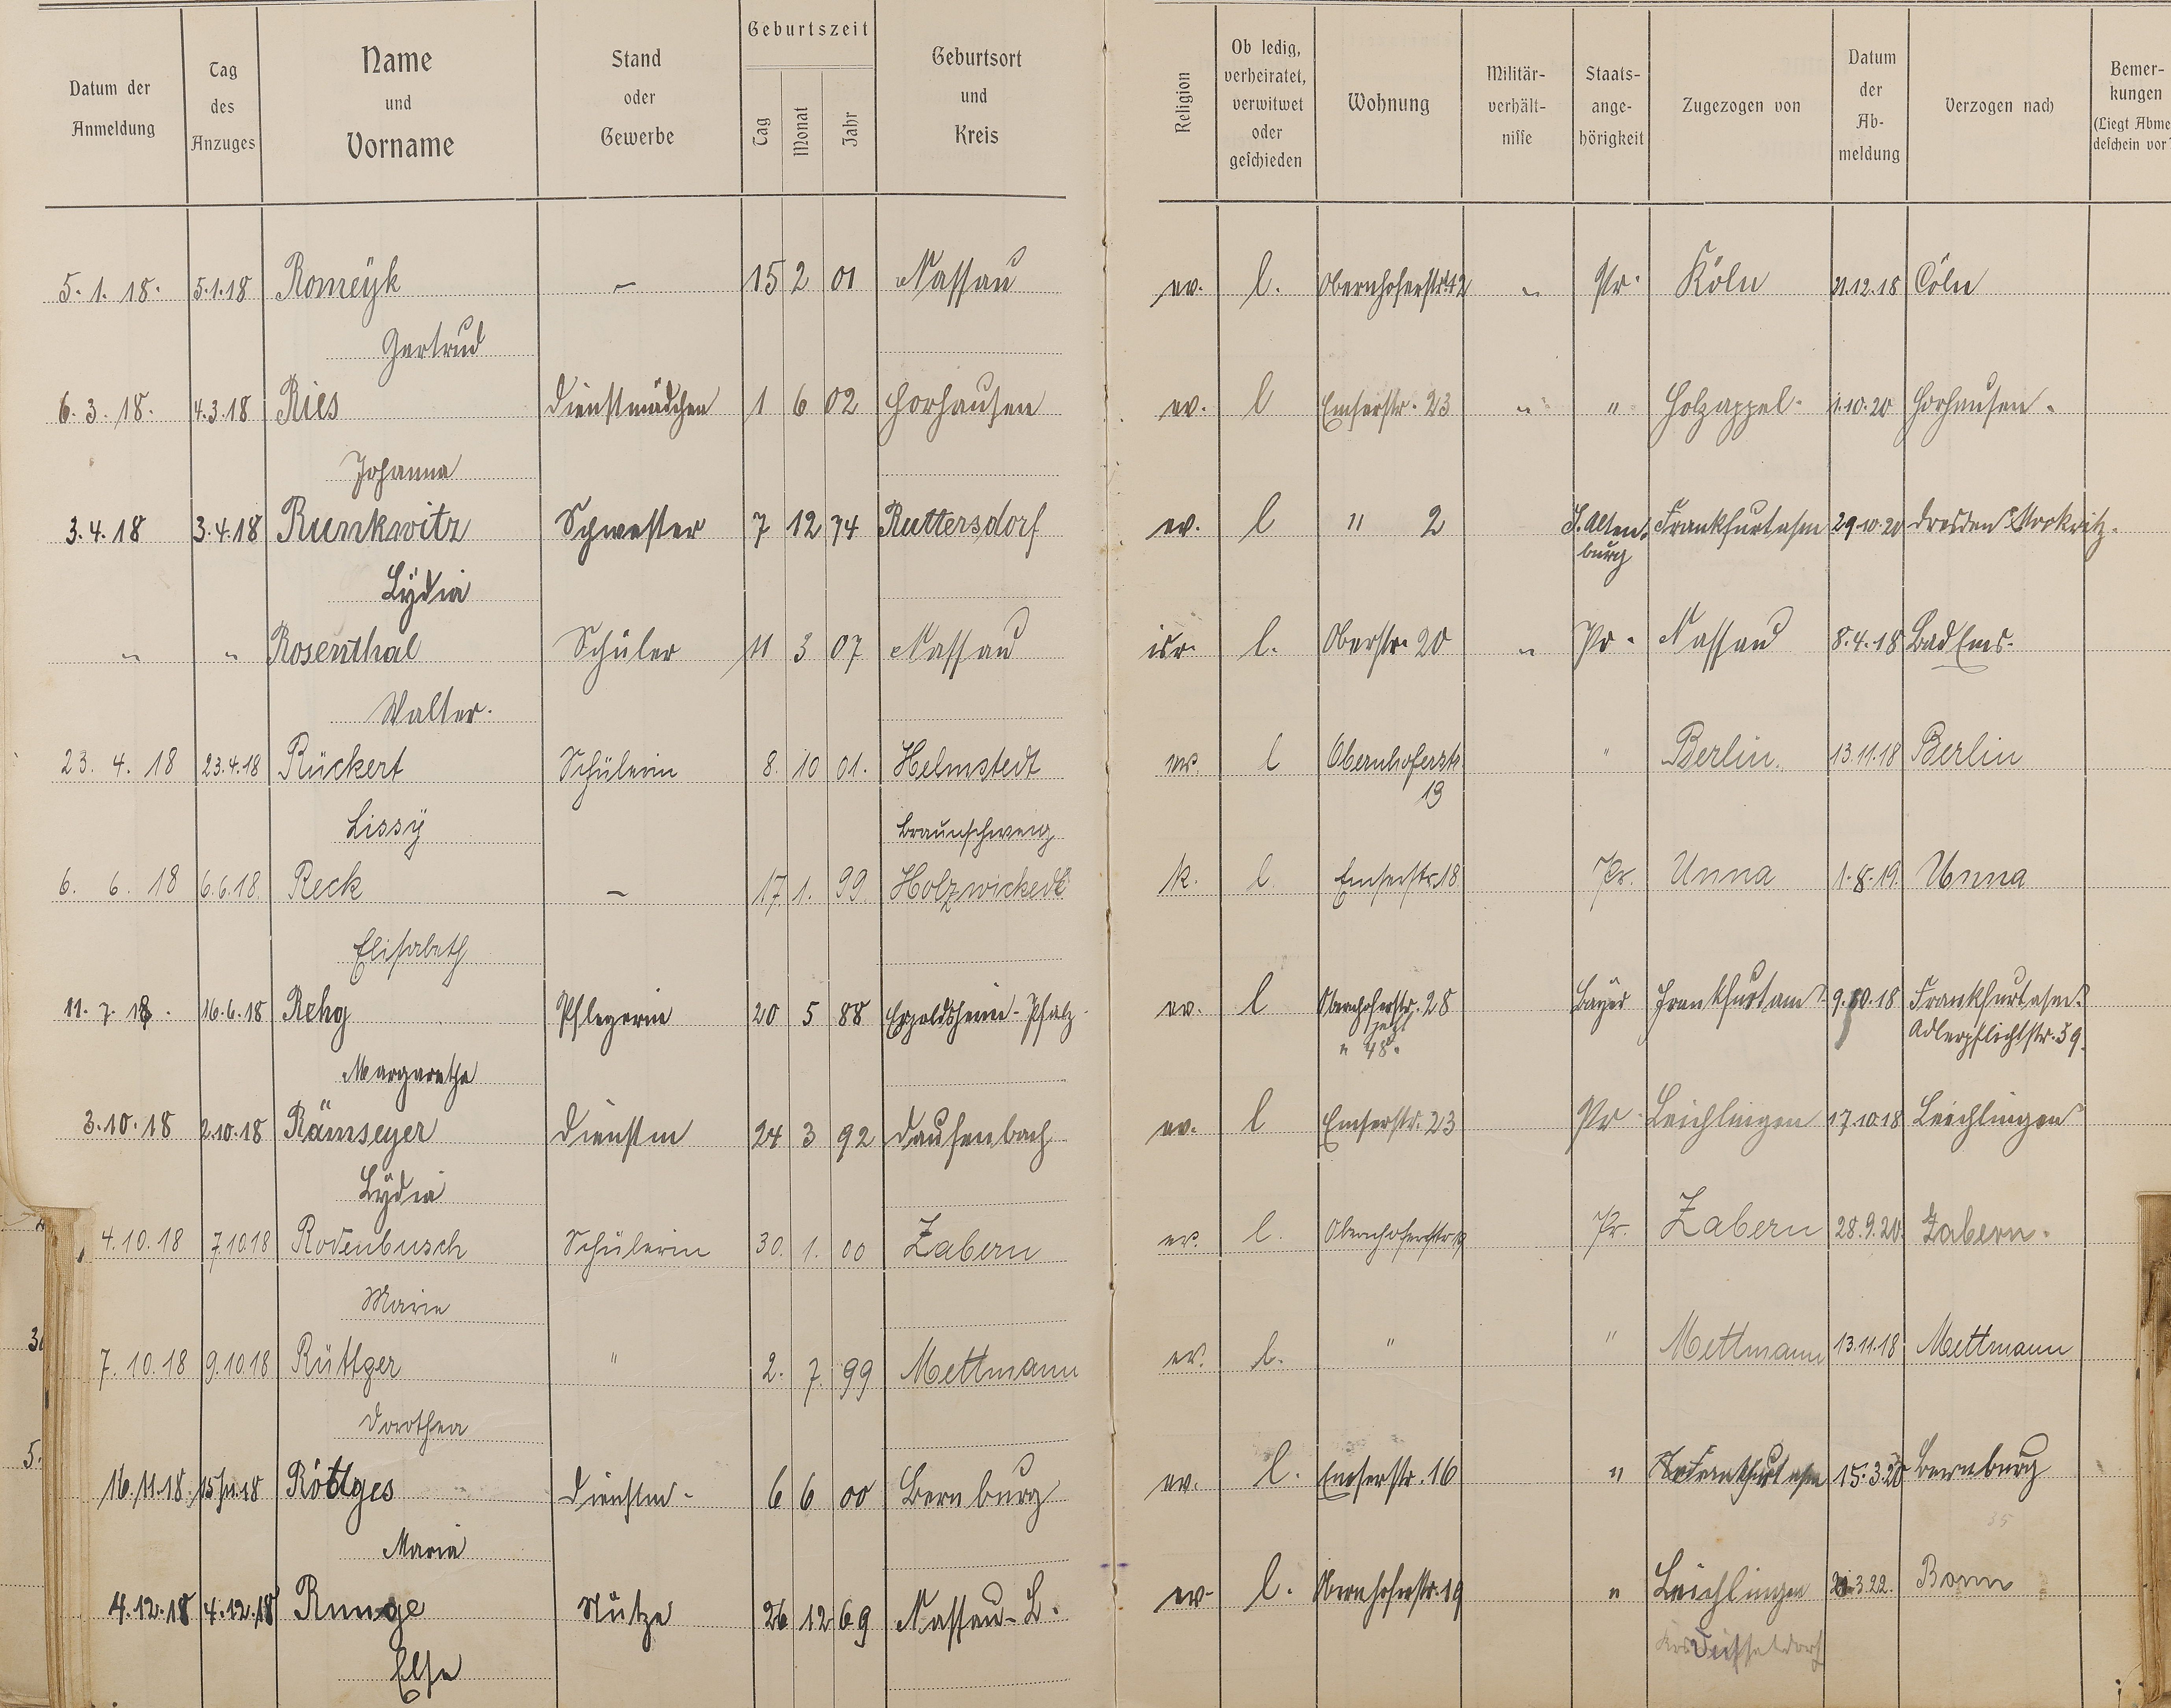 Datum der Anmeldung | Tag des Anzuges | Name und Vorname | Stand oder Gewerbe | Geburtszeit Tag Monat Jahr | Geburtsort und Kreis | Religion | Ob ledig, verheiratet, verwitwet oder geschieden | Wohnung | Militär-verhält-nisse | Staats-ange-hörigkeit | Zugezogen von | Datum der Ab-meldung | Verzogen nach | Bemer-kungen (Liegt Abme deschein vor
5. 1. 18. 5.1.18 Romeÿk – 15 2 01 Nassau ev. l. Obernhoferstr. 42 " Pr. Köln 21.12.18 Cöln
Gertrud
6. 3. 18. 4.3.18 Ries Dienstmädchen 1 6 02 Horhausen ev. l Emserstr. 23 " " Holzappel 1.10.20 Horhausen.
Johanna
3.4.18 3.4.18 Runkwitz Schwester 7 12 74 Ruttersdorf ev. l " 2 S. Alten- Frankfurt a/m 29.10.20 Dresden
burg
Lÿdia
" " Rosenthal Schüler 11 3 07 Nassau isr. l. Oberstr. 20 " Pr. Nassau 8.4.18 Bad Ems.
Walter.
23. 4. 18 23.4.18 Rückert Schülerin 8. 10 01. Helmstedt ev. l Obernhoferstr. " Berlin. 13.11.18 Berlin
19
Lissÿ Braunschweig
6. 6. 18 6.6.18. Reck – 17. 1. 99. Holzwickede k. l Emserstr. 18 Pr. Unna 1.8.19. Unna
Elisabeth
11. 7. 18. 16.6.18 Rehg Pflegerin 20 5 88 Erpoldsheim - Pfalz ev. l Obernhoferstr. 28 Bayer Frankfurt am 9.10.18 Frankfurt a/m.
jetzt Adlerflichtstr. 39.
" 48.
Margarethe
3.10.18 2.10.18 Rämseyer Dienstm 24 3 92 Daufenbach ev. l Emserstr. 23 Pr Leichlingen 17.10.18 Leichlingen
Lÿdia
4.10.18 7.10.18 Rodenbusch Schülerin 30. 1. 00 Zabern ev. l. Obernhoferstr. 19 Pr. Zabern 28.9.20 Zabern.
Marie
7. 10. 18 9.10.18 Rüttger " 2. 7. 99 Mettmann ev. l. " " Mettmann 13.11.18 Mettmann
Dorothea
16.11.18. 15/11.18 Röttges Dienstm. 6 6 00 Bernburg ev. l. Emserstr. 16 " Frankfurt a/m 15.3.20 Bernburg
Maria
4.12.18 4.12.18 Runge Stütze 26 12 69 Nassau - L. ev. l. Obernhoferstr. 19 " Leichlingen 3.22. Bonn
Düsseldorf
Else